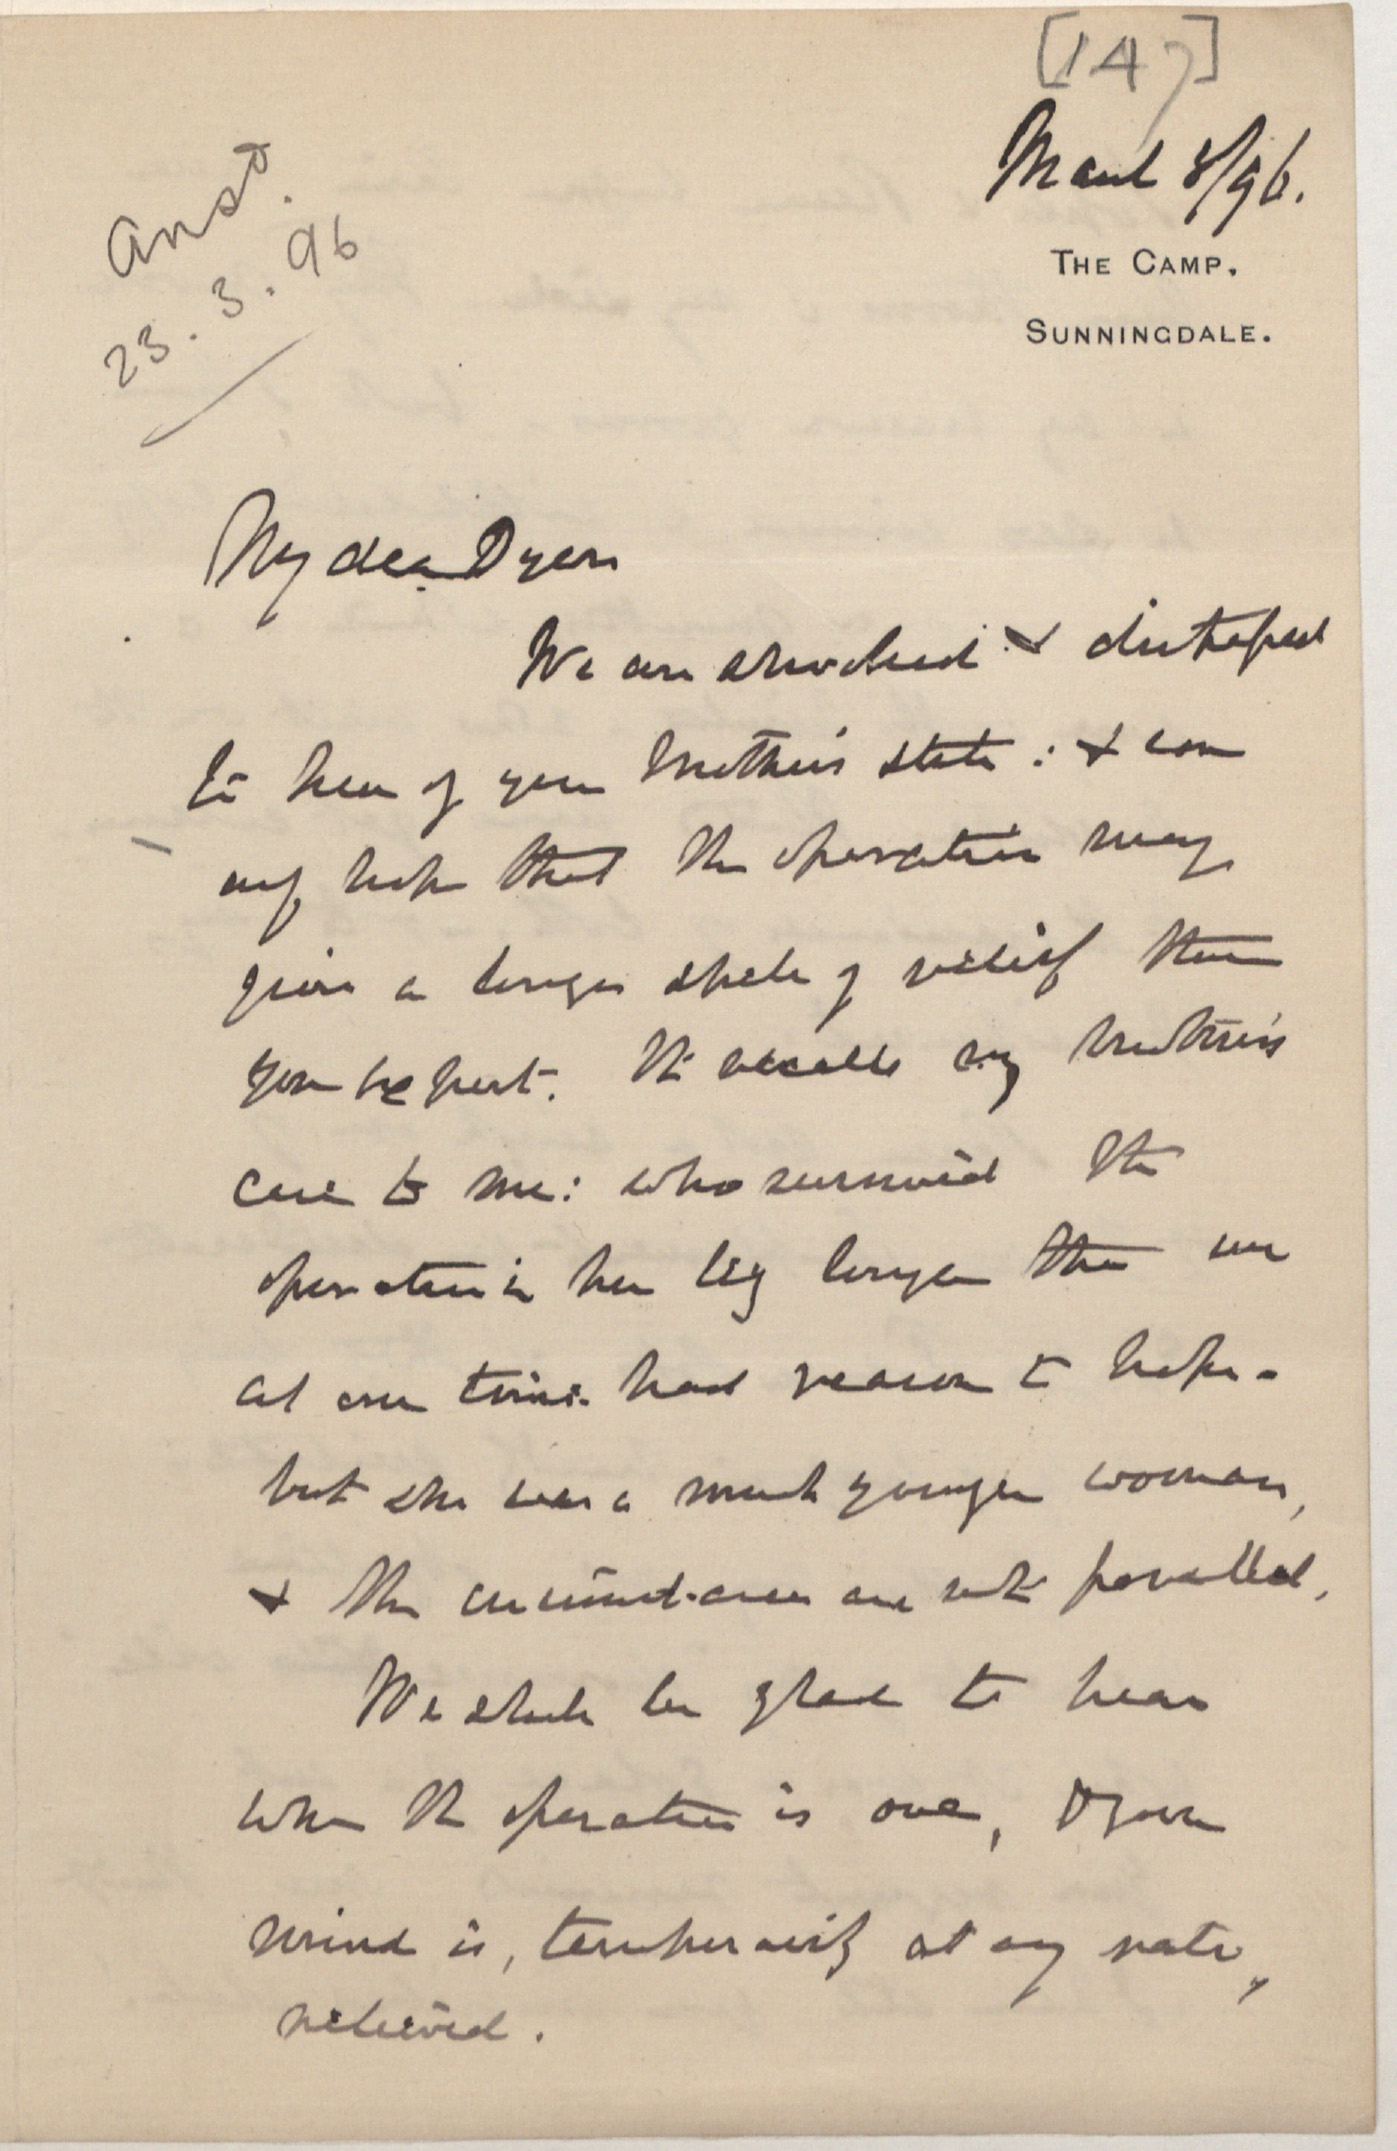 [147]
March 8/96.
Ansd.
23.3.96
THE CAMP.
SUNNINGDALE.
My dear Dyer
We are shocked & distressed
to hear of your Mother's state: & can
only hope that the operation may
give a longer spell of relief than
you expect. It recalls my mother's
case to me: who survived the
operation in her leg longer than we
at one time had reason to hope.
but she was a much younger woman,
& the circumstances are not parallel.
We shall be glad to hear
when the operation is over, & your
mind is, temporarily at any rate,
relieved.